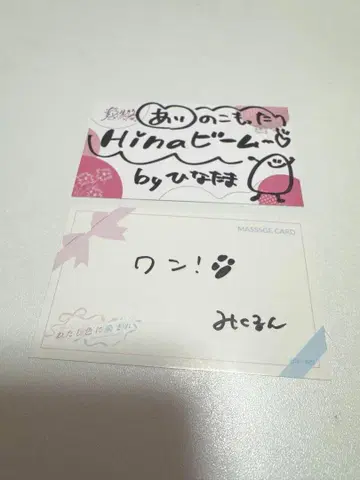 あいのこもった
Hinaビームー♡
byひなたま
MASSAGE CARD
ワン!
みくるん